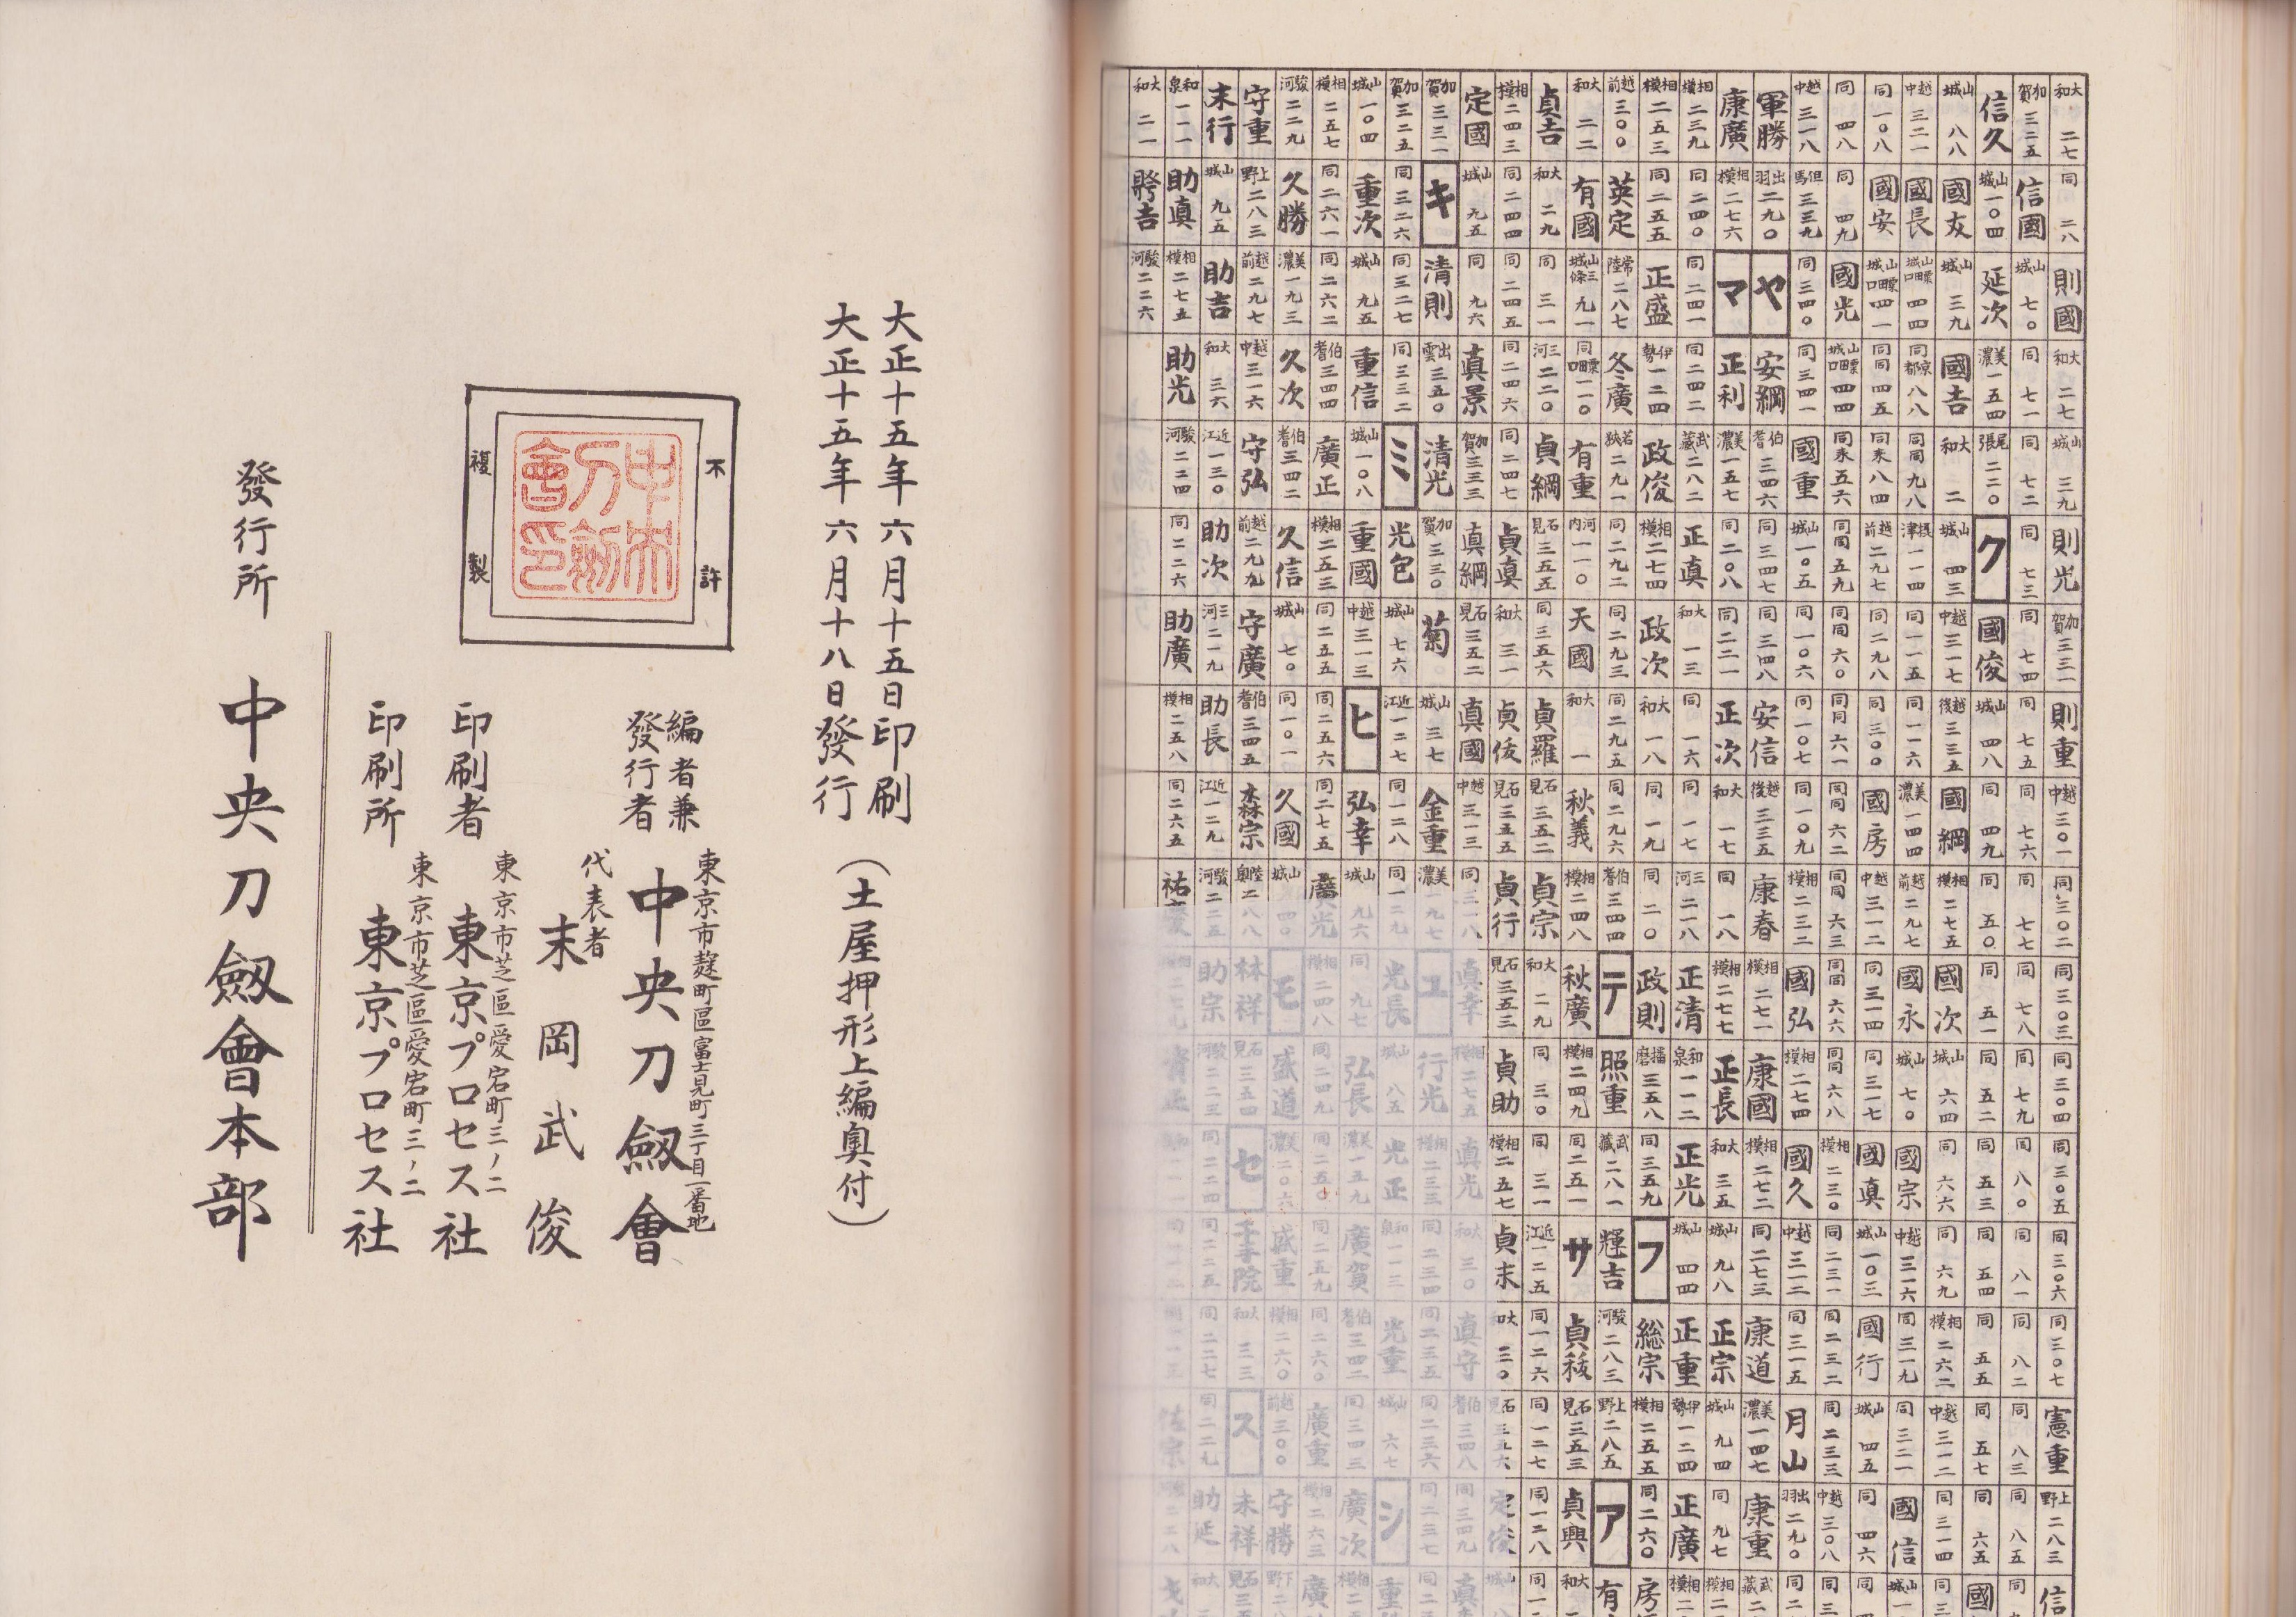 大和二七 同二八 則國 大和二七 山城三九 則光 加賀三三一 則重 越中三〇一 同三〇二 同三〇三 同三〇四 同三〇五 同三〇六 同三〇七 憲重 上野二八三 信
加賀三二五 信國 山城七〇 同七一 同七二 同七三 同七四 同七五 同七六 同七七 同七八 同七九 同八〇 同八一 同八二 同八三 同八五 同
信久 山城一〇四 延次 美濃一五四 尾張二二〇 ク 國俊 山城四八 同四九 同五〇 同五一 同五二 同五三 同五四 同五五 同五七 同六五 國
山城八八 國友 山城三九 國吉 大和二 山城四三 越中三一七 越後三三五 國綱 相模二七五 國次 山城六四 同六六 同六九 相模二六二 越中三一二 同三一四 同
越中三二一 國長 山城粟田口四四 同京都八八 同同九八 摂津一一四 同一一五 同一一六 美濃一四四 越前二九七 國永 山城七〇 國宗 越中三一六 同三一九 同三二一 國信 山城
同一〇八 國安 山城粟田口四一 同同四五 同来八四 越前二九七 同二九八 同三〇〇 國房 越中三一二 同三一四 同三一七 國真 山城一〇三 國行 山城四五 同四六 同
同四八 同四九 國光 山城粟田口四四 同来五六 同同五九 同同六〇 同同六一 同同六二 同同六三 同同六六 同同六八 相模二三〇 同二三一 同二三二 同二三三 越中三〇八 同
越中三一八 但馬三三九 同三四〇 同三四一 國重 山城一〇五 同一〇六 同一〇七 同一〇九 相模二三二 國弘 相模二七四 國久 越中三一二 同三一五 月山 出羽二九〇 同
軍勝 出羽二九〇 ヤ 安綱 伯耆三四六 同三四七 同三四八 安信 越後三三五 康春 相模二七一 康國 相模二七二 同二七三 康道 美濃一四七 康重 武蔵
康廣 相模二七六 マ 正利 美濃一五七 同二〇八 同二二一 正次 大和一七 同一八 相模二七七 正長 大和三五 山城九八 正宗 山城九四 同九七 相模
相模二三九 同二四〇 同二四一 同二四二 武蔵二八二 正真 大和一三 同一六 同一七 三河二一八 正清 和泉一一二 正光 山城四四 正重 伊勢一二四 正廣 相模
相模二五三 同二五五 正盛 伊勢一二四 政俊 相模二七四 政次 大和一八 同一九 同二〇 政則 播磨三五八 同三五九 フ 総宗 相模二五五 同二六〇 房
越前三〇〇 英定 常陸二八七 冬廣 若狭二九一 同二九二 同二九三 同二九五 同二九六 伯耆三四四 テ 照重 武蔵二八一 輝吉 駿河二八三 上野二八五 ア 有
大和二二 有國 山城三條九一 同粟田口一一〇 有重 河内一一〇 天國 大和一 秋義 相模二四八 秋廣 相模二四九 同二五一 サ 貞秡 石見三五三 貞興 大和
貞吉 大和二九 同三一 三河二二〇 貞綱 石見三五五 同三五六 貞羅 石見三五二 貞宗 大和二九 同三〇 同三一 近江一二五 同一二六 同一二七 同一二八 同
相模二四三 同二四四 同二四五 同二四六 同二四七 貞真 大和三一 貞伎 石見三五五 貞行 石見三五三 貞助 相模二五七 貞末 大和三〇 石見三五六 定俊 山城
定國 山城九五 同九六 真景 加賀三三三 真綱 石見三五二 真國 越中三一三 同三一八 真幸 相模二七五 真光 大和三〇 真守 伯耆三四八 同三四九 真
加賀三三一 キ 清則 出雲三五〇 清光 加賀三三〇 菊 山城三七 金重 美濃一九七 ユ 行光 相模二三三 同二三四 同二三五 同二三六 同二三七 同
加賀三二五 同三二六 同三二七 同三三二 ミ 光包 山城七六 近江一二七 同一二八 同一二九 光長 山城八五 光正 和泉一一三 光重 山城六七 シ 重
山城一〇四 重次 山城九五 重信 山城一〇八 重國 越中三一三 ヒ 弘幸 山城九六 同九七 弘長 美濃一五九 廣賀 伯耆三四二 同三四三 廣次 相模
相模二五七 同二六一 同二六二 伯耆三四四 廣正 相模二五三 同二五五 同二五六 同二七五 廣光 相模二四八 同二四九 同二五〇 同二五九 同二六〇 廣重 相模二六三 廣
駿河二二九 久勝 美濃一九三 久次 伯耆三四二 久信 山城七〇 同一〇一 久國 山城四〇 モ 盛道 美濃二〇六 盛重 相模二六〇 越前三〇〇 守勝 下野
守重 上野二八三 越前二九七 越中三一六 守弘 越前二九九 守廣 伯耆三四五 森宗 陸奥二八八 林祥 石見三五四 セ 千手院 大和三三 ス 末祥 石見
末行 山城九五 助吉 大和三六 近江一三〇 助次 三河二一九 助長 近江一二九 駿河二二五 助宗 駿河二二三 同二二四 同二二五 同二二七 同二二九 助延 大和
和泉一一一 助真 相模二七五 助光 駿河二二四 同二二六 助廣 相模二五八 同二六五
大和二一 駿河二二六
大正十五年六月十五日印刷
大正十五年六月十八日發行
(土屋押形上編奥付)
不許
複製
中央刀劔會印
編者兼
發行者
東京市麹町區富士見町三丁目一番地
中央刀劔會
代表者
末岡武俊
印刷者
東京市芝區愛宕町三ノ二
東京プロセス社
印刷所
東京市芝區愛宕町三ノ二
東京プロセス社
發行所 中央刀劔會本部